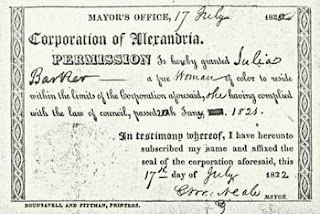 MAYOR'S OFFICE, 17 July 1822
Corporation of Alexandria.
PERMISSION Is hereby granted Julia
Barker a free Woman of color to reside
within the limits of the Corporation aforesaid, she having complied
with the law of council, passed 2th June 1821.
In testimony whereof, I have hereunto
subscribed my name and affixed the
seal of the corporation aforesaid, this
17th day of July 1822
Chr. Neale
MAYOR.
ROUNSAVELL, AND PITTMAN, PRINTERS.